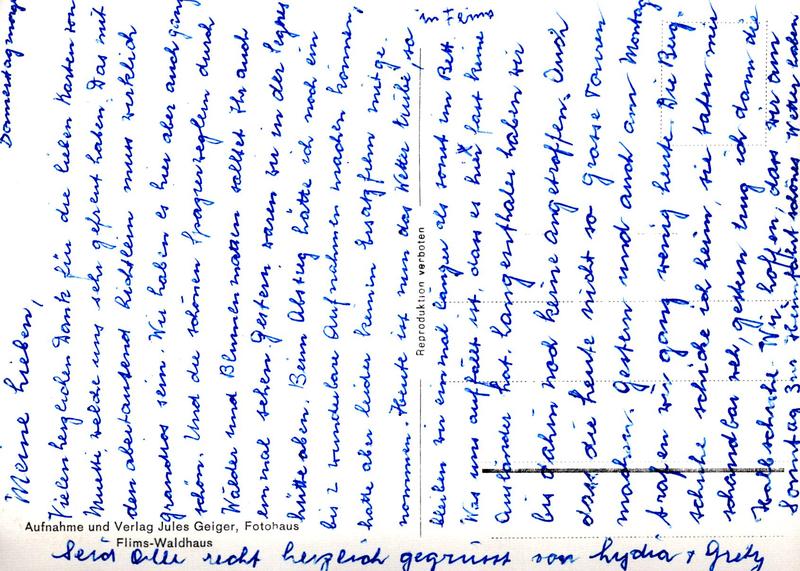 Donnerstagmorgen
in Flims
Meine Lieben,
Vielen herzlichen Dank für die lieben Karten von
Muetti, welche uns sehr gefreut haben. Das mit
den abertausend Lichtlein muss wirklich
grandios sein. Wir haben es hier aber auch ganz
schön. Und die schönen Spazierweglein durch
Wälder und Blumenmatten solltet Ihr auch
einmal sehen. Gestern waren wir in der Segnes
hütte oben. Beim Abstieg hätte ich noch ein
bis 2 wunderbare Aufnahmen machen können,
hatte aber leider keinen Ersatzfilm mitge-
nommen. Heute ist nun das Wetter trübe, so
bleiben wir einmal länger als sonst im Bett.
Was uns auffällt ist, dass es hier fast keine
Ausländer hat. Langenthaler haben wir
bis dahin noch keine angetroffen. Auch
dass die Leute nicht so grosse Touren
machen. Gestern und auch am Montag
trafen wir ganz wenig Leute. Die Berg-
schuhe schicke ich heim, sie taten mir
schandbar weh, gestern trug ich dann die
Halbschuhe. Wir hoffen, dass wir am
Sonntag zur Heimfahrt schönes Wetter haben.
Seid alle recht herzlich gegrüsst von Lydia + Grety
Reproduktion verboten
Aufnahme und Verlag Jules Geiger, Fotohaus
Flims-Waldhaus